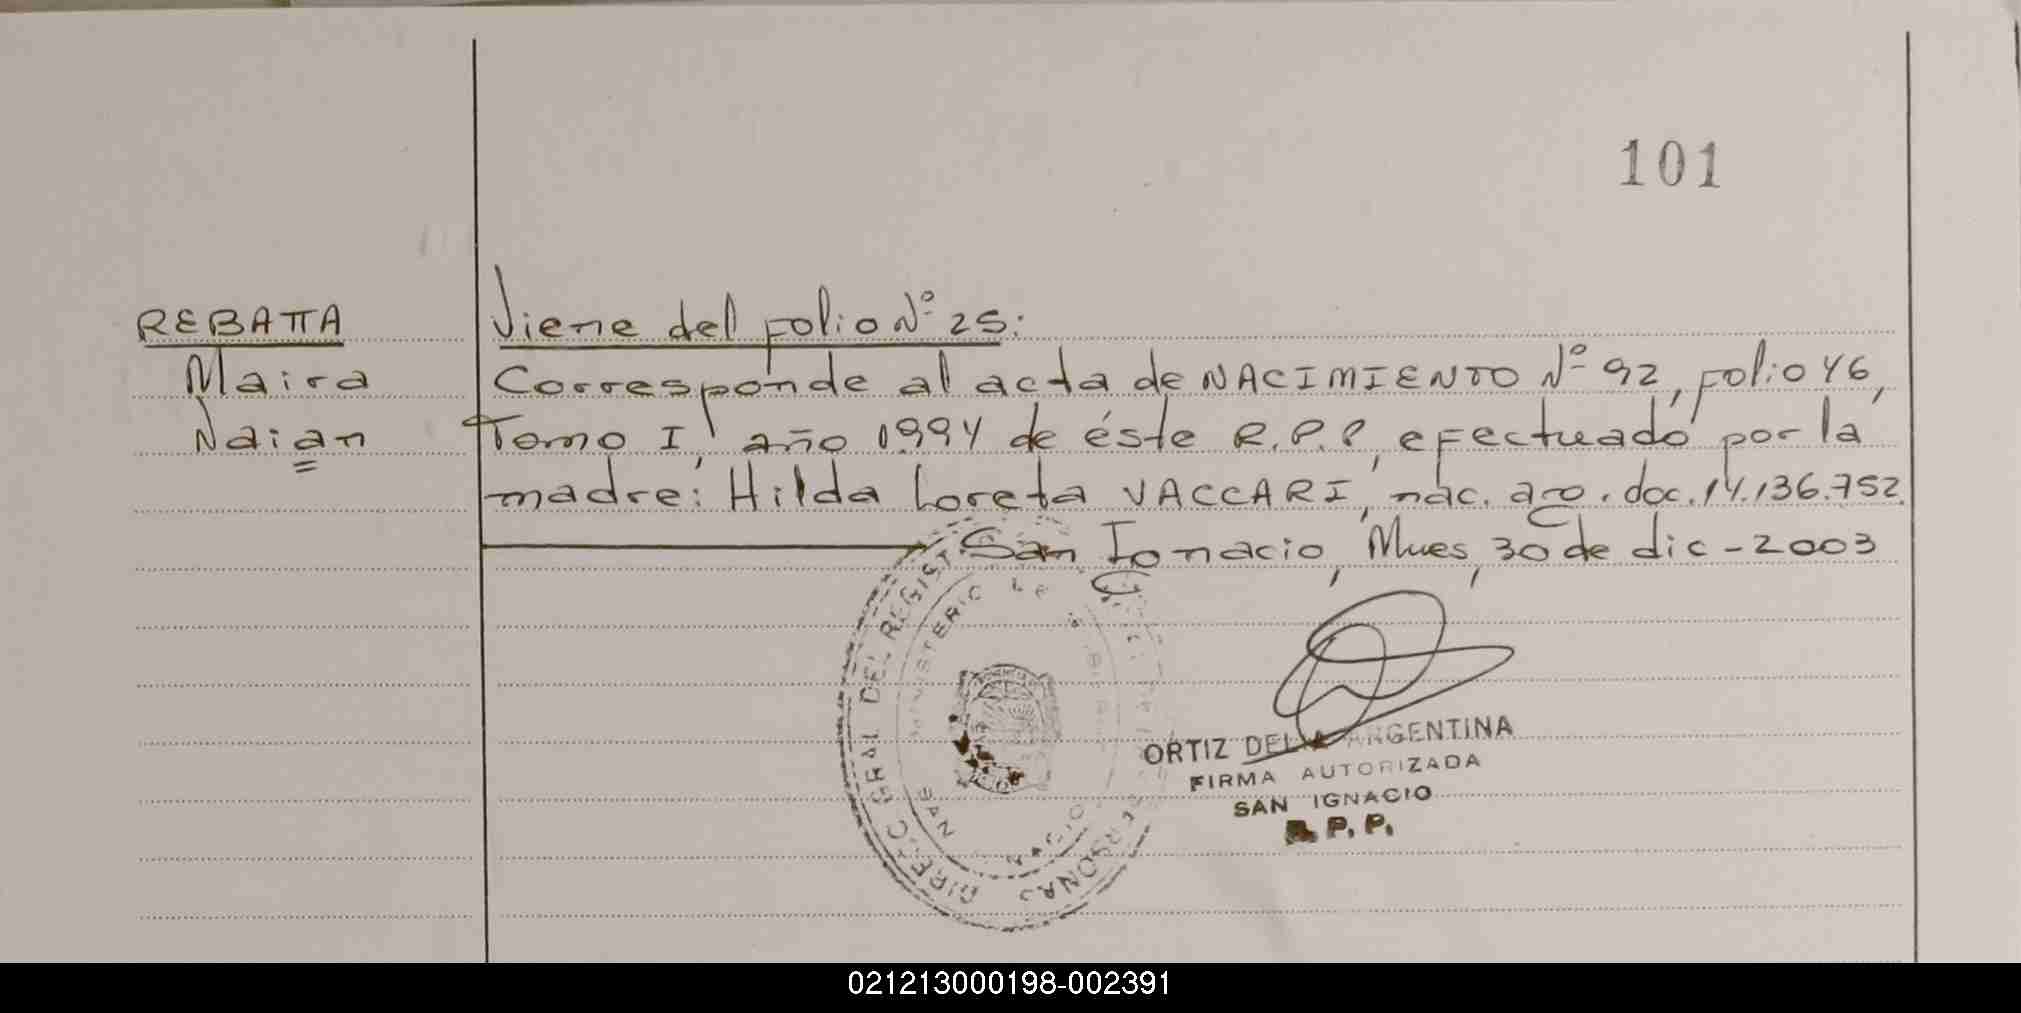 101
REBATTA Viene del folio Nº 25:
Maira Corresponde al acta de NACIMIENTO Nº 92, folio 46,
Naian Tomo I, año 1994 de éste R.P.P, efectuado por la
madre: Hilda Loreta VACCARI, nac. arg. doc. 14.136.752.
San Ignacio, Mnes, 30 de dic - 2003
DIREC GRAL DEL REGIST PERSONAS
MINISTERIO DE
SAN IGNACIO
ORTIZ DEL ARGENTINA
FIRMA AUTORIZADA
SAN IGNACIO
R. P. P.
021213000198-002391